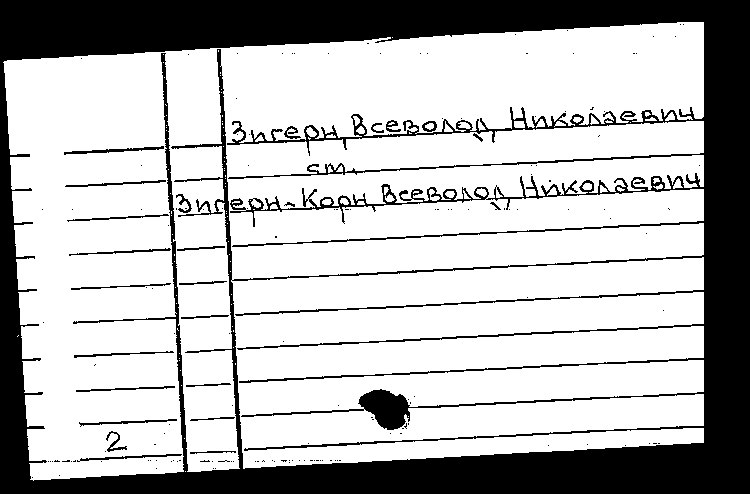 Зигерн, Всеволод, Николаевич
см.
Зигерн-Корн, Всеволод, Николаевич
2